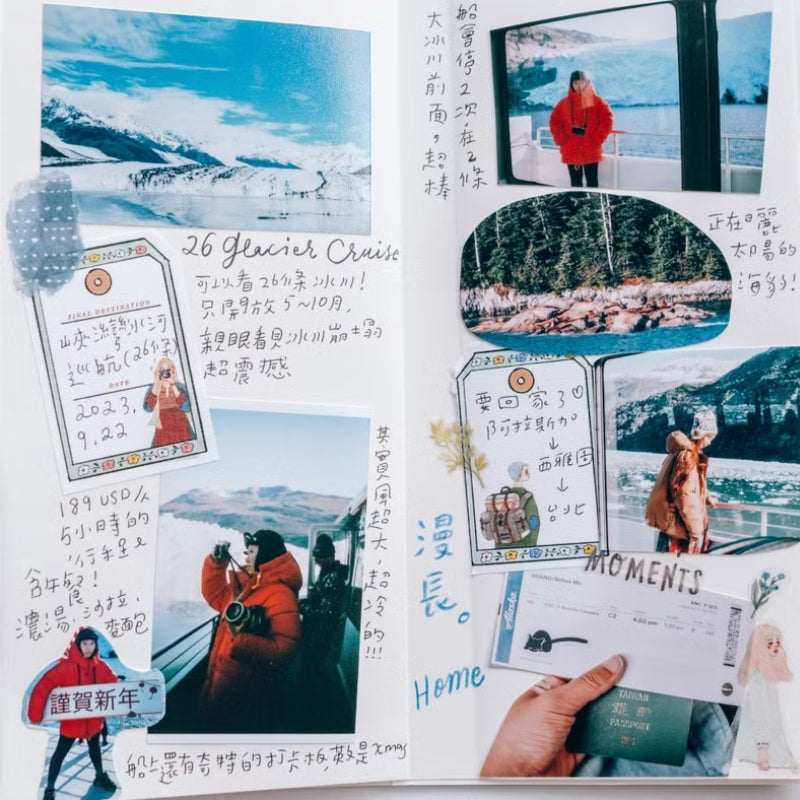 26 glacier cruise
可以看26條冰川!
只開放5~10月,
親眼看見冰川崩塌
超震撼
FINAL DESTINATION
峽灣冰河
巡航(26條)
DATE
2023.
9.22
189 USD/人
5小時的
行程
含午餐!
濃湯、沙拉、
麵包
其實風超大,超冷的!!!
謹賀新年
船上還有奇特的打卡板,
是xmas
船會停2次在2條
大冰川前面,超棒
正在曬
太陽的
海豹!
要回家了♡
阿拉斯加
↓
西雅圖
↓
台北
漫長。
Home
MOMENTS
Alaska
4:50 pm
TAIWAN
護照
PASSPORT